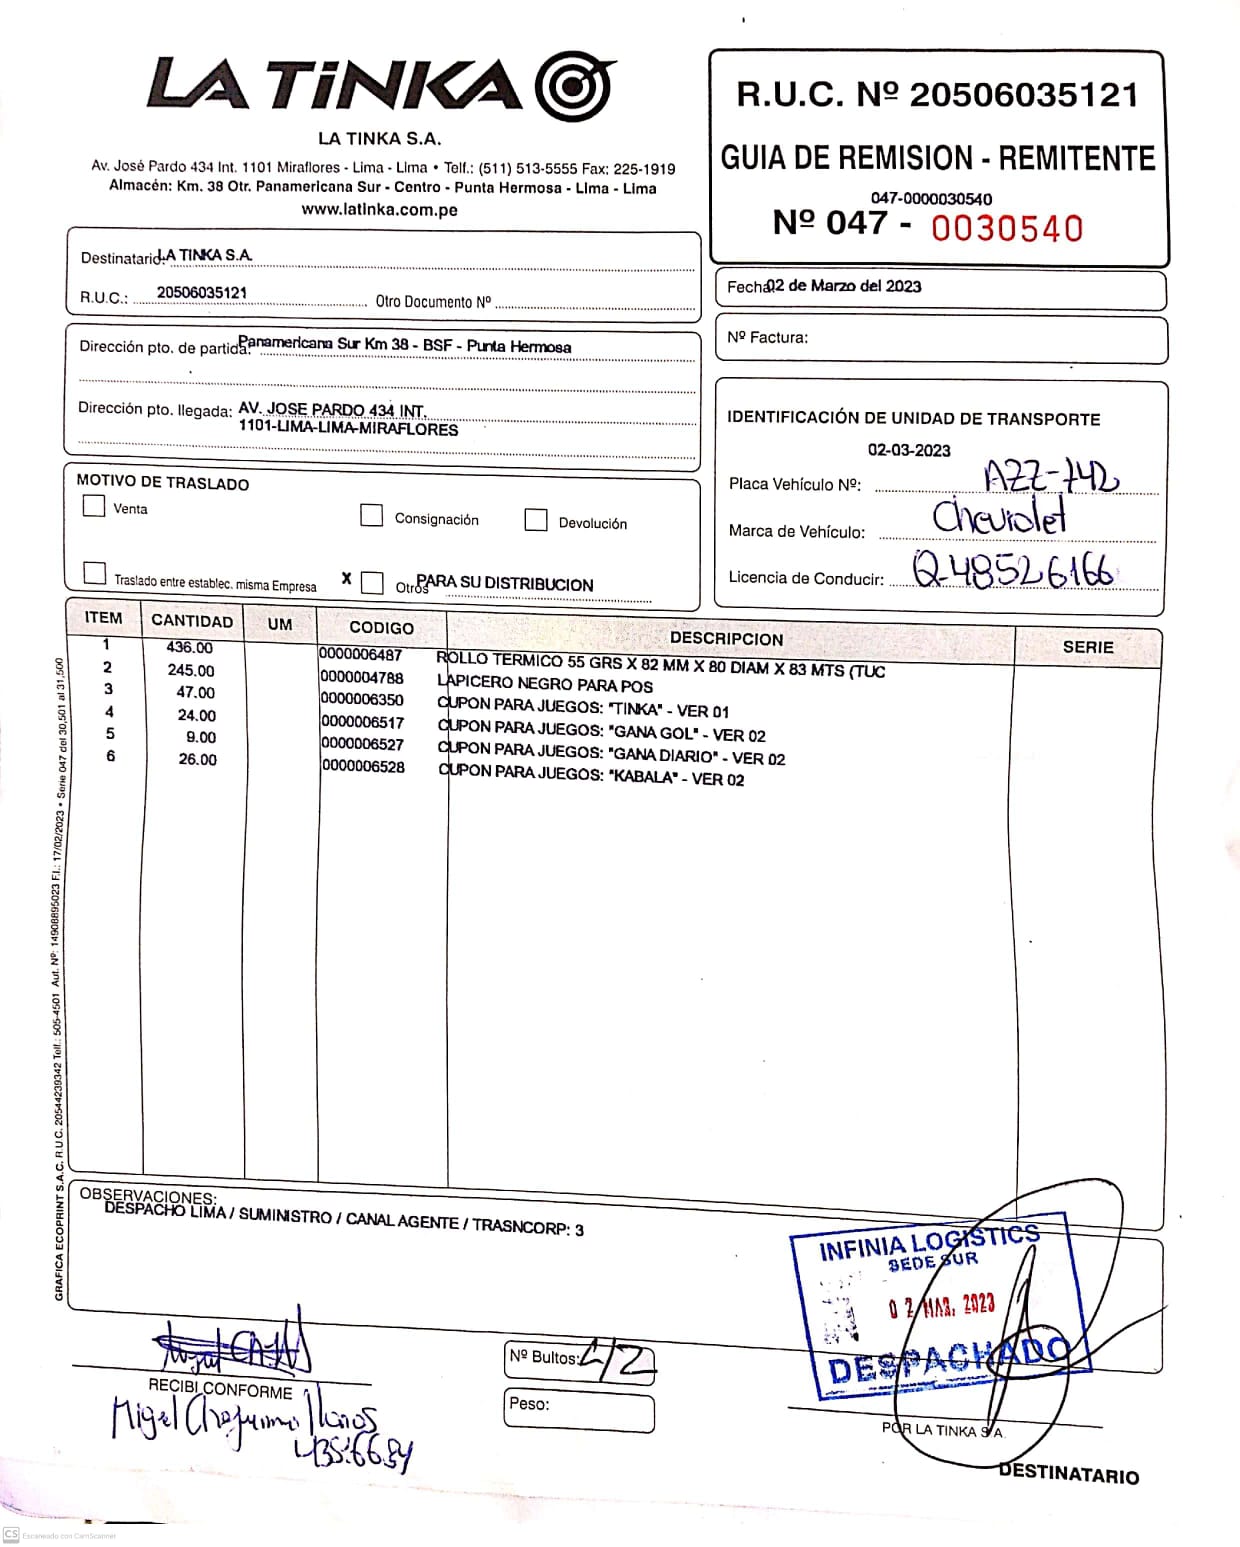 LA TINKA
LA TINKA S.A.
Av. José Pardo 434 Int. 1101 Miraflores - Lima - Lima • Telf.: (511) 513-5555 Fax: 225-1919
Almacén: Km. 38 Otr. Panamericana Sur - Centro - Punta Hermosa - Lima - Lima
www.latinka.com.pe
R.U.C. Nº 20506035121
GUIA DE REMISION - REMITENTE
047-0000030540
Nº 047 - 0030540
Destinatario: LA TINKA S.A.
R.U.C.: 20506035121 Otro Documento Nº
Fecha: 02 de Marzo del 2023
Nº Factura:
Dirección pto. de partida: Panamericana Sur Km 38 - BSF - Punta Hermosa
Dirección pto. llegada: AV. JOSE PARDO 434 INT.
1101-LIMA-LIMA-MIRAFLORES
IDENTIFICACIÓN DE UNIDAD DE TRANSPORTE
02-03-2023
Placa Vehículo Nº: AZZ-742
Marca de Vehículo: Chevrolet
Licencia de Conducir: Q-48526166
MOTIVO DE TRASLADO
Venta Consignación Devolución
Traslado entre establec. misma Empresa X Otros PARA SU DISTRIBUCION
ITEM CANTIDAD UM CODIGO DESCRIPCION SERIE
1 436.00 0000006487 ROLLO TERMICO 55 GRS X 82 MM X 80 DIAM X 83 MTS (TUC
2 245.00 0000004788 LAPICERO NEGRO PARA POS
3 47.00 0000006350 CUPON PARA JUEGOS: "TINKA" - VER 01
4 24.00 0000006517 CUPON PARA JUEGOS: "GANA GOL" - VER 02
5 9.00 0000006527 CUPON PARA JUEGOS: "GANA DIARIO" - VER 02
6 26.00 0000006528 CUPON PARA JUEGOS: "KABALA" - VER 02
GRAFICA ECOPRINT S.A.C. R.U.C. 20544239342 Telf.: 505-4501 Aut. Nº: 14908895023 F.I.: 17/02/2023 • Serie 047 del 30,501 al 31,500
OBSERVACIONES:
DESPACHO LIMA / SUMINISTRO / CANAL AGENTE / TRASNCORP: 3
INFINIA LOGISTICS
SEDE SUR
02 MAR. 2023
DESPACHADO
RECIBI CONFORME
Migel Llanos
Nº Bultos:
Peso:
POR LA TINKA S.A.
DESTINATARIO
CS Escaneado con CamScanner